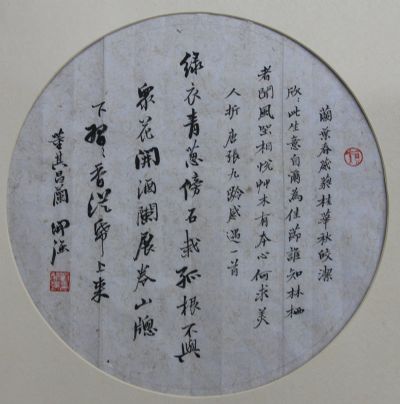 蘭葉春葳蕤桂華秋皎潔
欣〻此生意自爾為佳節誰知林栖
者聞風坐相悅艸木有本心何求美
人折 唐張九齡感遇一首
綠衣青蔥傍石栽孤根不與
眾花開酒闌展卷山牕
下習〻香從紙上来
董其昌蘭